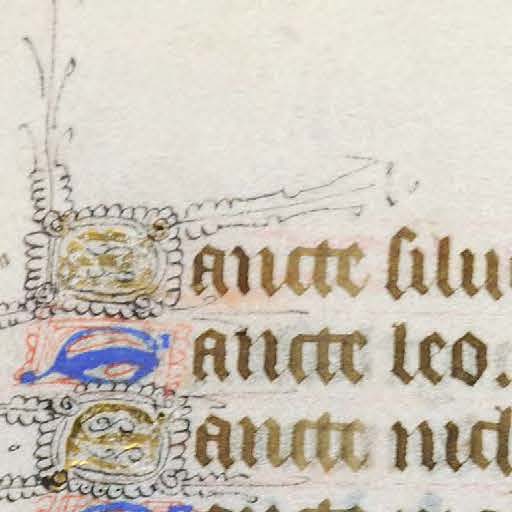 Sancte silu
Sancte leo.
Sancte nich